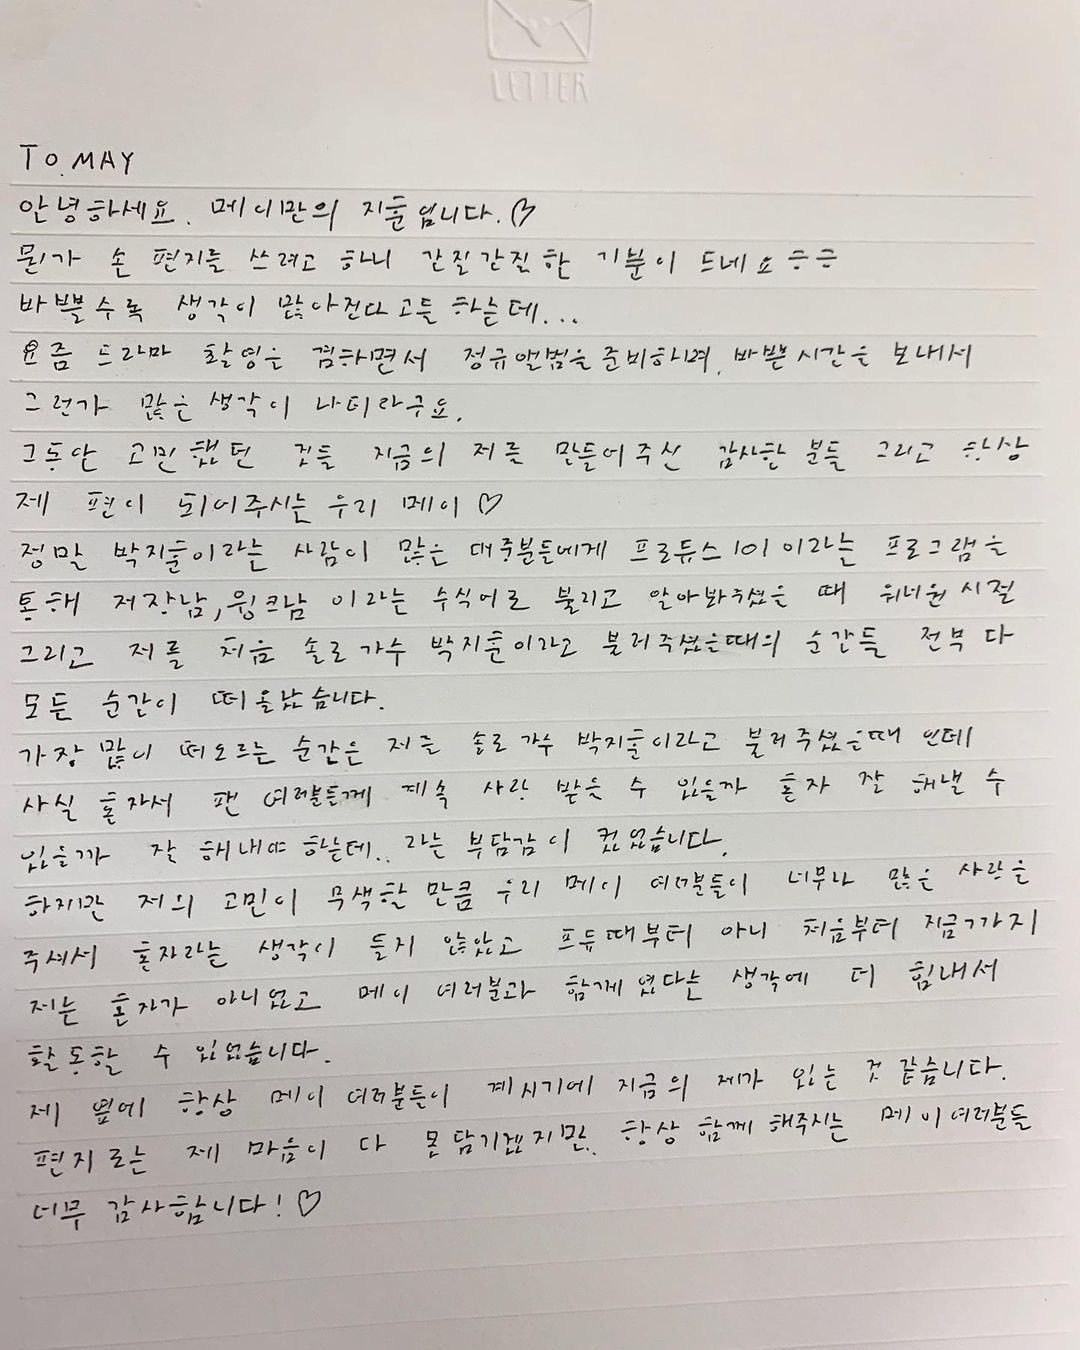 LETTER
TO.MAY
안녕하세요. 메이만의 지훈입니다.♡
뭔가 손 편지를 쓰려고 하니 간질간질한 기분이 드네요ㅎㅎ
바쁠수록 생각이 많아진다고들 하는데...
요즘 드라마 촬영을 겸하면서 정규앨범을 준비하며, 바쁜 시간을 보내서
그런가 많은 생각이 나더라구요.
그동안 고민했던 것들 지금의 저를 만들어주신 감사한 분들 그리고 항상
제 편이 되어주시는 우리 메이♡
정말 박지훈이라는 사람이 많은 대중분들에게 프로듀스101이라는 프로그램을
통해 저장남, 윙크남 이라는 수식어로 불리고 알아봐주셨을 때 워너원 시절
그리고 저를 처음 솔로가수 박지훈이라고 불러주셨을때의 순간들 전부 다
모든 순간이 떠올랐습니다.
가장 많이 떠오르는 순간은 저를 솔로가수 박지훈이라고 불러주셨을때 인데
사실 혼자서 팬 여러분들께 계속 사랑 받을 수 있을까 혼자 잘 해낼 수
있을까 잘 해내야 하는데.. 라는 부담감이 컸었습니다.
하지만 저의 고민이 무색할 만큼 우리 메이 여러분들이 너무나 많은 사랑을
주셔서 혼자라는 생각이 들지 않았고 프듀때부터 아니 처음부터 지금까지
저는 혼자가 아니었고 메이 여러분과 함께였다는 생각에 더 힘내서
활동할 수 있었습니다.
제 옆에 항상 메이 여러분들이 계시기에 지금의 제가 있는 것 같습니다.
편지로는 제 마음이 다 못담기겠지만.. 항상 함께 해주시는 메이여러분들
너무 감사합니다!♡